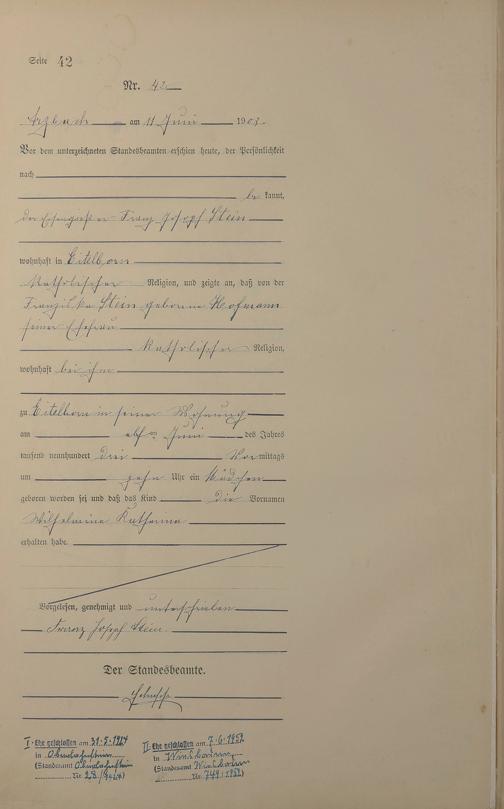 Seite 42
Nr. 42
Arzbach am 11 Juni 1903.
Vor dem unterzeichneten Standesbeamten erschien heute, der Persönlichkeit
nach
be kannt,
der Eisengießer Franz Joseph Stein
wohnhaft in Eitelborn
Katholischer Religion, und zeigte an, daß von der
Franziska Stein geborene Hofmann
seiner Ehefrau
Katholischer Religion,
wohnhaft bei ihm
zu Eitelborn in seiner Wohnung
am elften Juni des Jahres
tausend neunhundert drei Vormittags
um zehn Uhr ein Mädchen
geboren worden sei und daß das Kind die Vornamen
Wilhelmine Katharina
erhalten habe.
Vorgelesen, genehmigt und unterschrieben
Franz Joseph Stein
Der Standesbeamte.
I. Ehe geschlossen am 31.5.1924
in Oberlahnstein
(Standesamt Oberlahnstein
Nr. 28/1924)
II. Ehe geschlossen am 7.6.1952
in
(Standesamt
Nr. 749/1952)